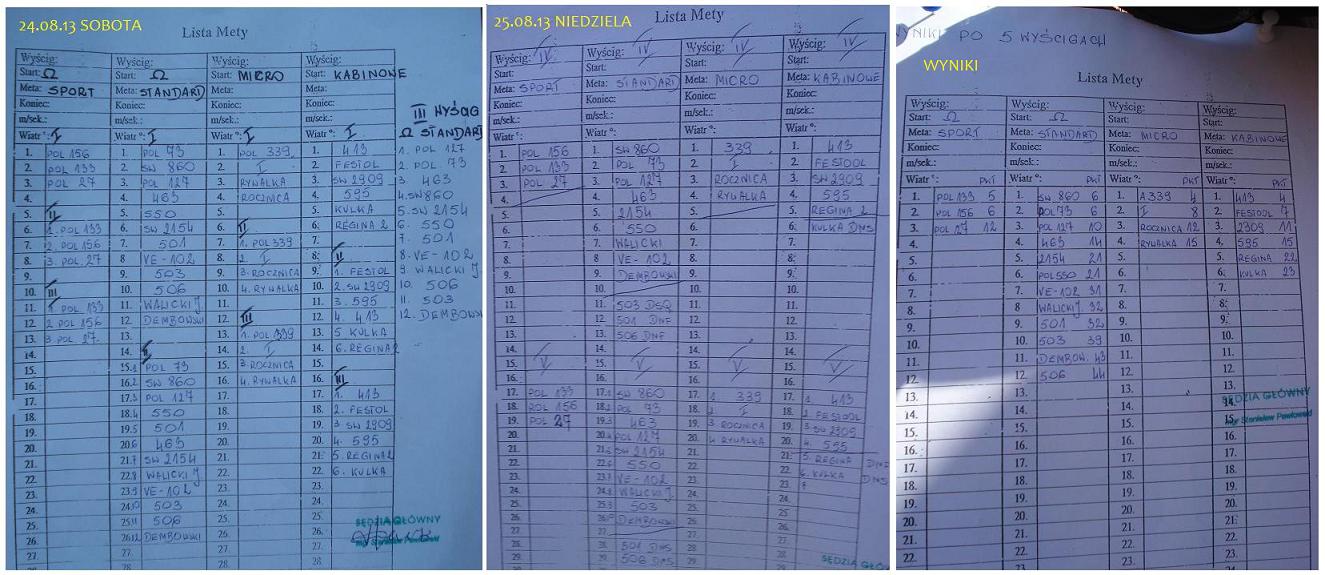 24.08.13 SOBOTA
Lista Mety
Wyścig: Wyścig: Wyścig: Wyścig:
Start: Ω Start: Ω Start: MICRO Start: KABINOWE
Meta: SPORT Meta: STANDARD Meta: Meta:
Koniec: Koniec: Koniec: Koniec:
m/sek.: m/sek.: m/sek.: m/sek.:
Wiatr °: I Wiatr °: I Wiatr °: I Wiatr °: I
1. POL 156 1. POL 73 1. POL 339 1. 413
2. POL 133 2. SW 860 2. I 2. FESTOL
3. POL 27 3. POL 127 3. RYWALKA 3. SW 2909
4. 4. 463 4. ROCZNICA 4. 595
5. II 5. 550 5. 5. KULKA
6. 1. POL 133 6. SW 2154 6. II 6. REGINA 2
7. 2. POL 156 7. 501 7. 1. POL 339 7.
8. 3. POL 27 8 VE-102 8. 2. I 8. II
9. 9. 503 9. 3. ROCZNICA 9. 1. FESTOL
10. III 10. 506 10. 4. RYWALKA 10. 2. SW 2909
11. 1 POL 133 11. WALICKI J 11. 11. 3. 595
12. 2 POL 156 12. DEMBOWSKI 12. III 12. 4. 413
13. 3 POL 27 13. 13. 1. POL 339 13. 5 KULKA
14. 14. II 14. 2. I 14. 6. REGINA 2
15. 15.1 POL 73 15. 3. ROCZNICA 15.
16. 16.2 SW 860 16. 4. RYWALKA 16. III
17. 17.3 POL 127 17. 17. 1. 413
18. 18.4 550 18. 18. 2. FESTOL
19. 19.5 501 19. 19. 3 SW 2909
20. 20.6 463 20. 20. 4. 595
21. 21.7 SW 2154 21. 21. 5. REGINA 2
22. 22.8 WALICKI J 22. 22. 6. KULKA
23. 23.9 VE-102 23. 23.
24. 24.10 503 24. 24.
25. 25.11 506 25. 25.
26. 26.12 DEMBOWSKI 26. 26.
27. 27. 27. 27.
28. 28. 28.
III WYŚCIG
Ω STANDART
1. POL 127
2. POL 73
3. 463
4. SW 860
5. SW 2154
6. 550
7. 501
8. VE-102
9. WALICKI J.
10. 506
11. 503
12. DEMBOW
SĘDZIA GŁÓWNY
mgr Stanisław Pawłowski
25.08.13 NIEDZIELA
Lista Mety
Wyścig: IV Wyścig: IV Wyścig: IV Wyścig: IV
Start: Start: Start: Start:
Meta: SPORT Meta: STANDARD Meta: MICRO Meta: KABINOWE
Koniec: Koniec: Koniec: Koniec:
m/sek.: m/sek.: m/sek.: m/sek.:
Wiatr °: Wiatr °: Wiatr °: Wiatr °:
1. POL 156 1. SW 860 1. 339 1. 413
2. POL 133 2. POL 73 2. I 2. FESTOOL
3. POL 27 3. POL 127 3. ROCZNICA 3. SW 2909
4. 4. 463 4. RYWALKA 4. 595
5. 5. 2154 5. 5. REGINA 2
6. 6. 550 6. 6. KULKA DNS
7. 7. WALICKI 7. 7.
8. 8. VE-102 8. 8.
9. 9. DEMBOWSKI 9. 9.
10. 10. 10. 10.
11. 11. 503 DSQ 11. 11.
12. 12. 501 DNF 12. 12.
13. 13. 506 DNF 13. 13.
14. 14. 14. 14.
15. V 15. V 15. V 15. V
16. 16. 16. 16.
17. POL 133 17.1 SW 860 17. 1. 339 17. 1. 413
18. POL 156 18.2 POL 73 18. 2. I 18. 2. FESTOOL
19. POL 27 19.3 463 19. 3 ROCZNICA 19. 3 SW 2909
20. 20.4 POL 127 20. 4 RYWALKA 20. 4. 595
21. 21.5 SW 2154 21. 21. 5. REGINA DNF
22. 22.6 550 22. 22. 6. KULKA DNS
23. 23.7 VE-102 23. 23.
24. 24.8 WALICKI J 24. 24.
25. 25.9 503 25. 25.
26. 26.10 DEMBOWSKI 26. 26.
27. 27. 27. 27.
28. 28. 501 DNS 28. 28.
29. 29. 506 DNS 29.
SĘDZIA GŁÓ
WYNIKI PO 5 WYŚCIGACH
WYNIKI
Lista Mety
Wyścig: Wyścig: Wyścig: Wyścig:
Start: Ω Start: Ω Start: Start:
Meta: SPORT Meta: STANDARD Meta: MICRO Meta: KABINOWE
Koniec: Koniec: Koniec: Koniec:
m/sek.: m/sek.: m/sek.: m/sek.:
Wiatr °: PKT Wiatr °: PKT Wiatr °: PKT Wiatr °: PKT
1. POL 133 5 1. SW 860 6 1. A339 4 1. 413 4
2. POL 156 6 2. POL 73 6 2. I 8 2. FESTOOL 7
3. POL 27 12 3. POL 127 10 3. ROCZNICA 12 3. 2909 11
4. 4. 463 14 4. RYWALKA 15 4. 595 15
5. 5. 2154 21 5. 5. REGINA 22
6. 6. POL 550 21 6. 6. KULKA 23
7. 7. VE-102 31 7. 7.
8. 8 WALICKI J. 32 8. 8.
9. 9. 501 32 9. 9.
10. 10. 503 39 10. 10.
11. 11. DEMBOW. 43 11. 11.
12. 12. 506 44 12. 12.
13. 13. 13. 13.
14. 14. 14. 14.
15. 15. 15. 15.
16. 16. 16. 16.
17. 17. 17. 17.
18. 18. 18. 18.
19. 19. 19. 19.
20. 20. 20. 20.
21. 21. 21. 21.
22. 22. 22. 22.
23. 23. 23.
SĘDZIA GŁÓWNY
mgr Stanisław Pawłowski